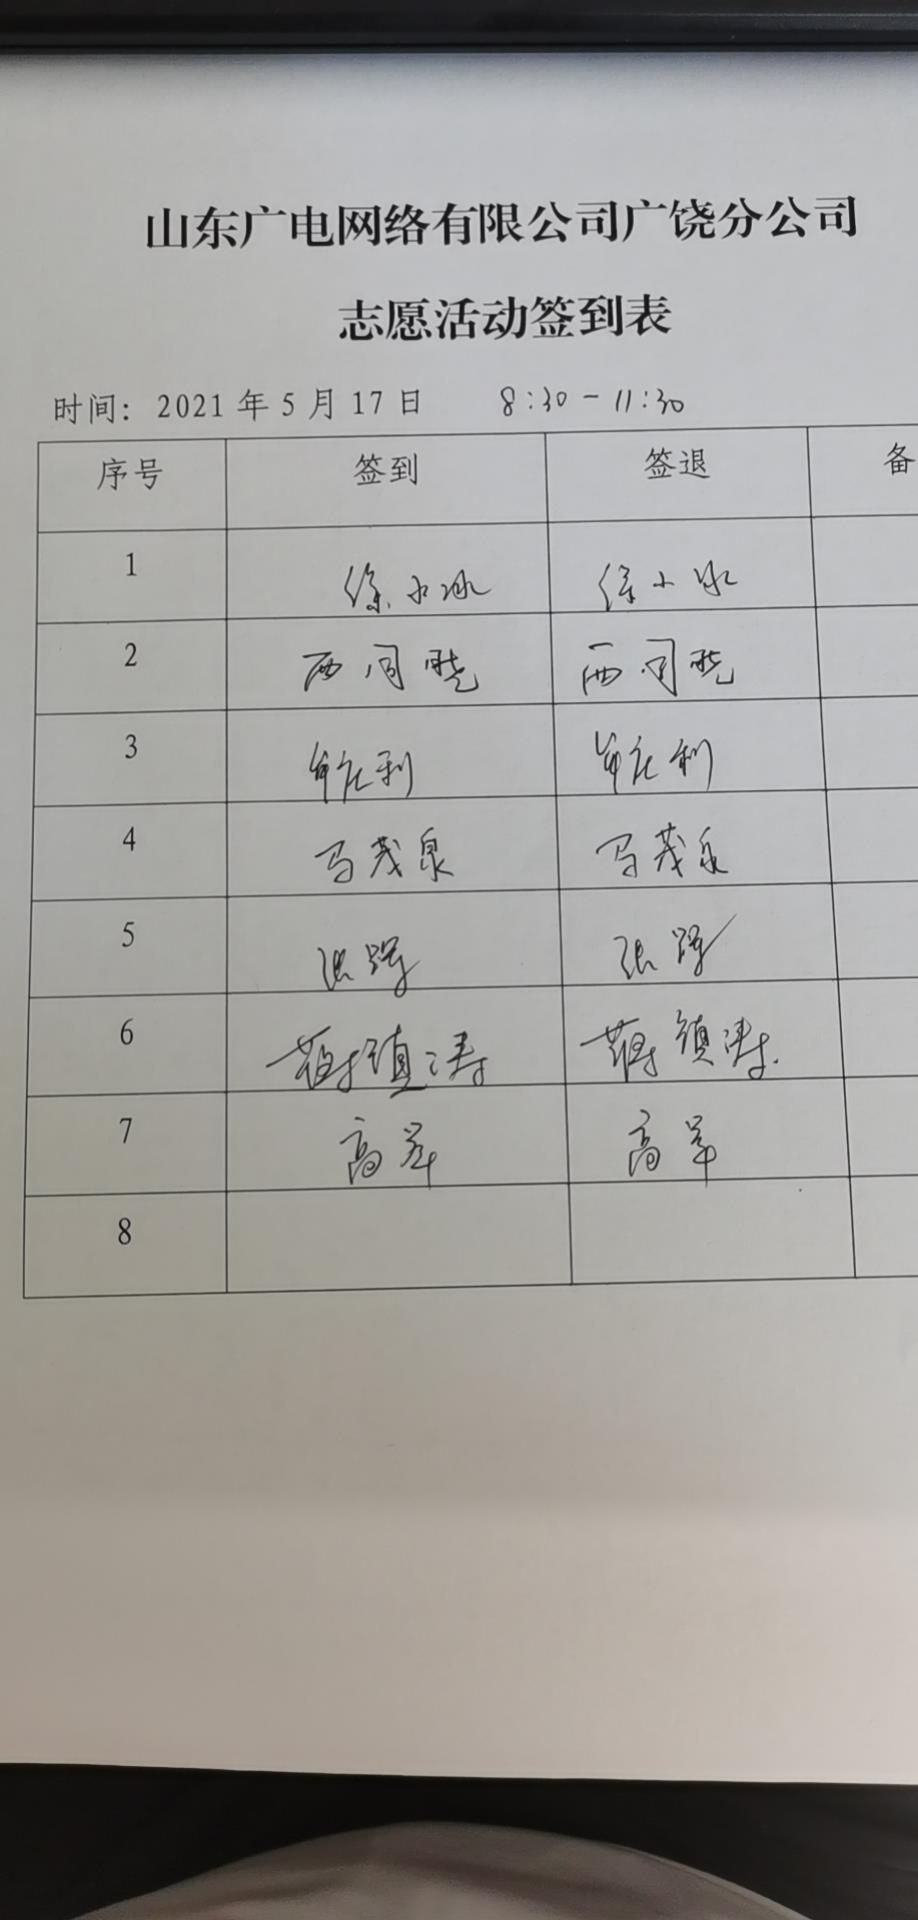 山东广电网络有限公司广饶分公司
志愿活动签到表
时间：2021年5月17日 8:30-11:30
序号 签到 签退 备
1 徐小冰 徐小冰
2 西同晓 西同晓
3 利 利
4 马茂泉 马茂泉
5 张 张
6 蒋镇涛 蒋镇涛
7 高军 高军
8